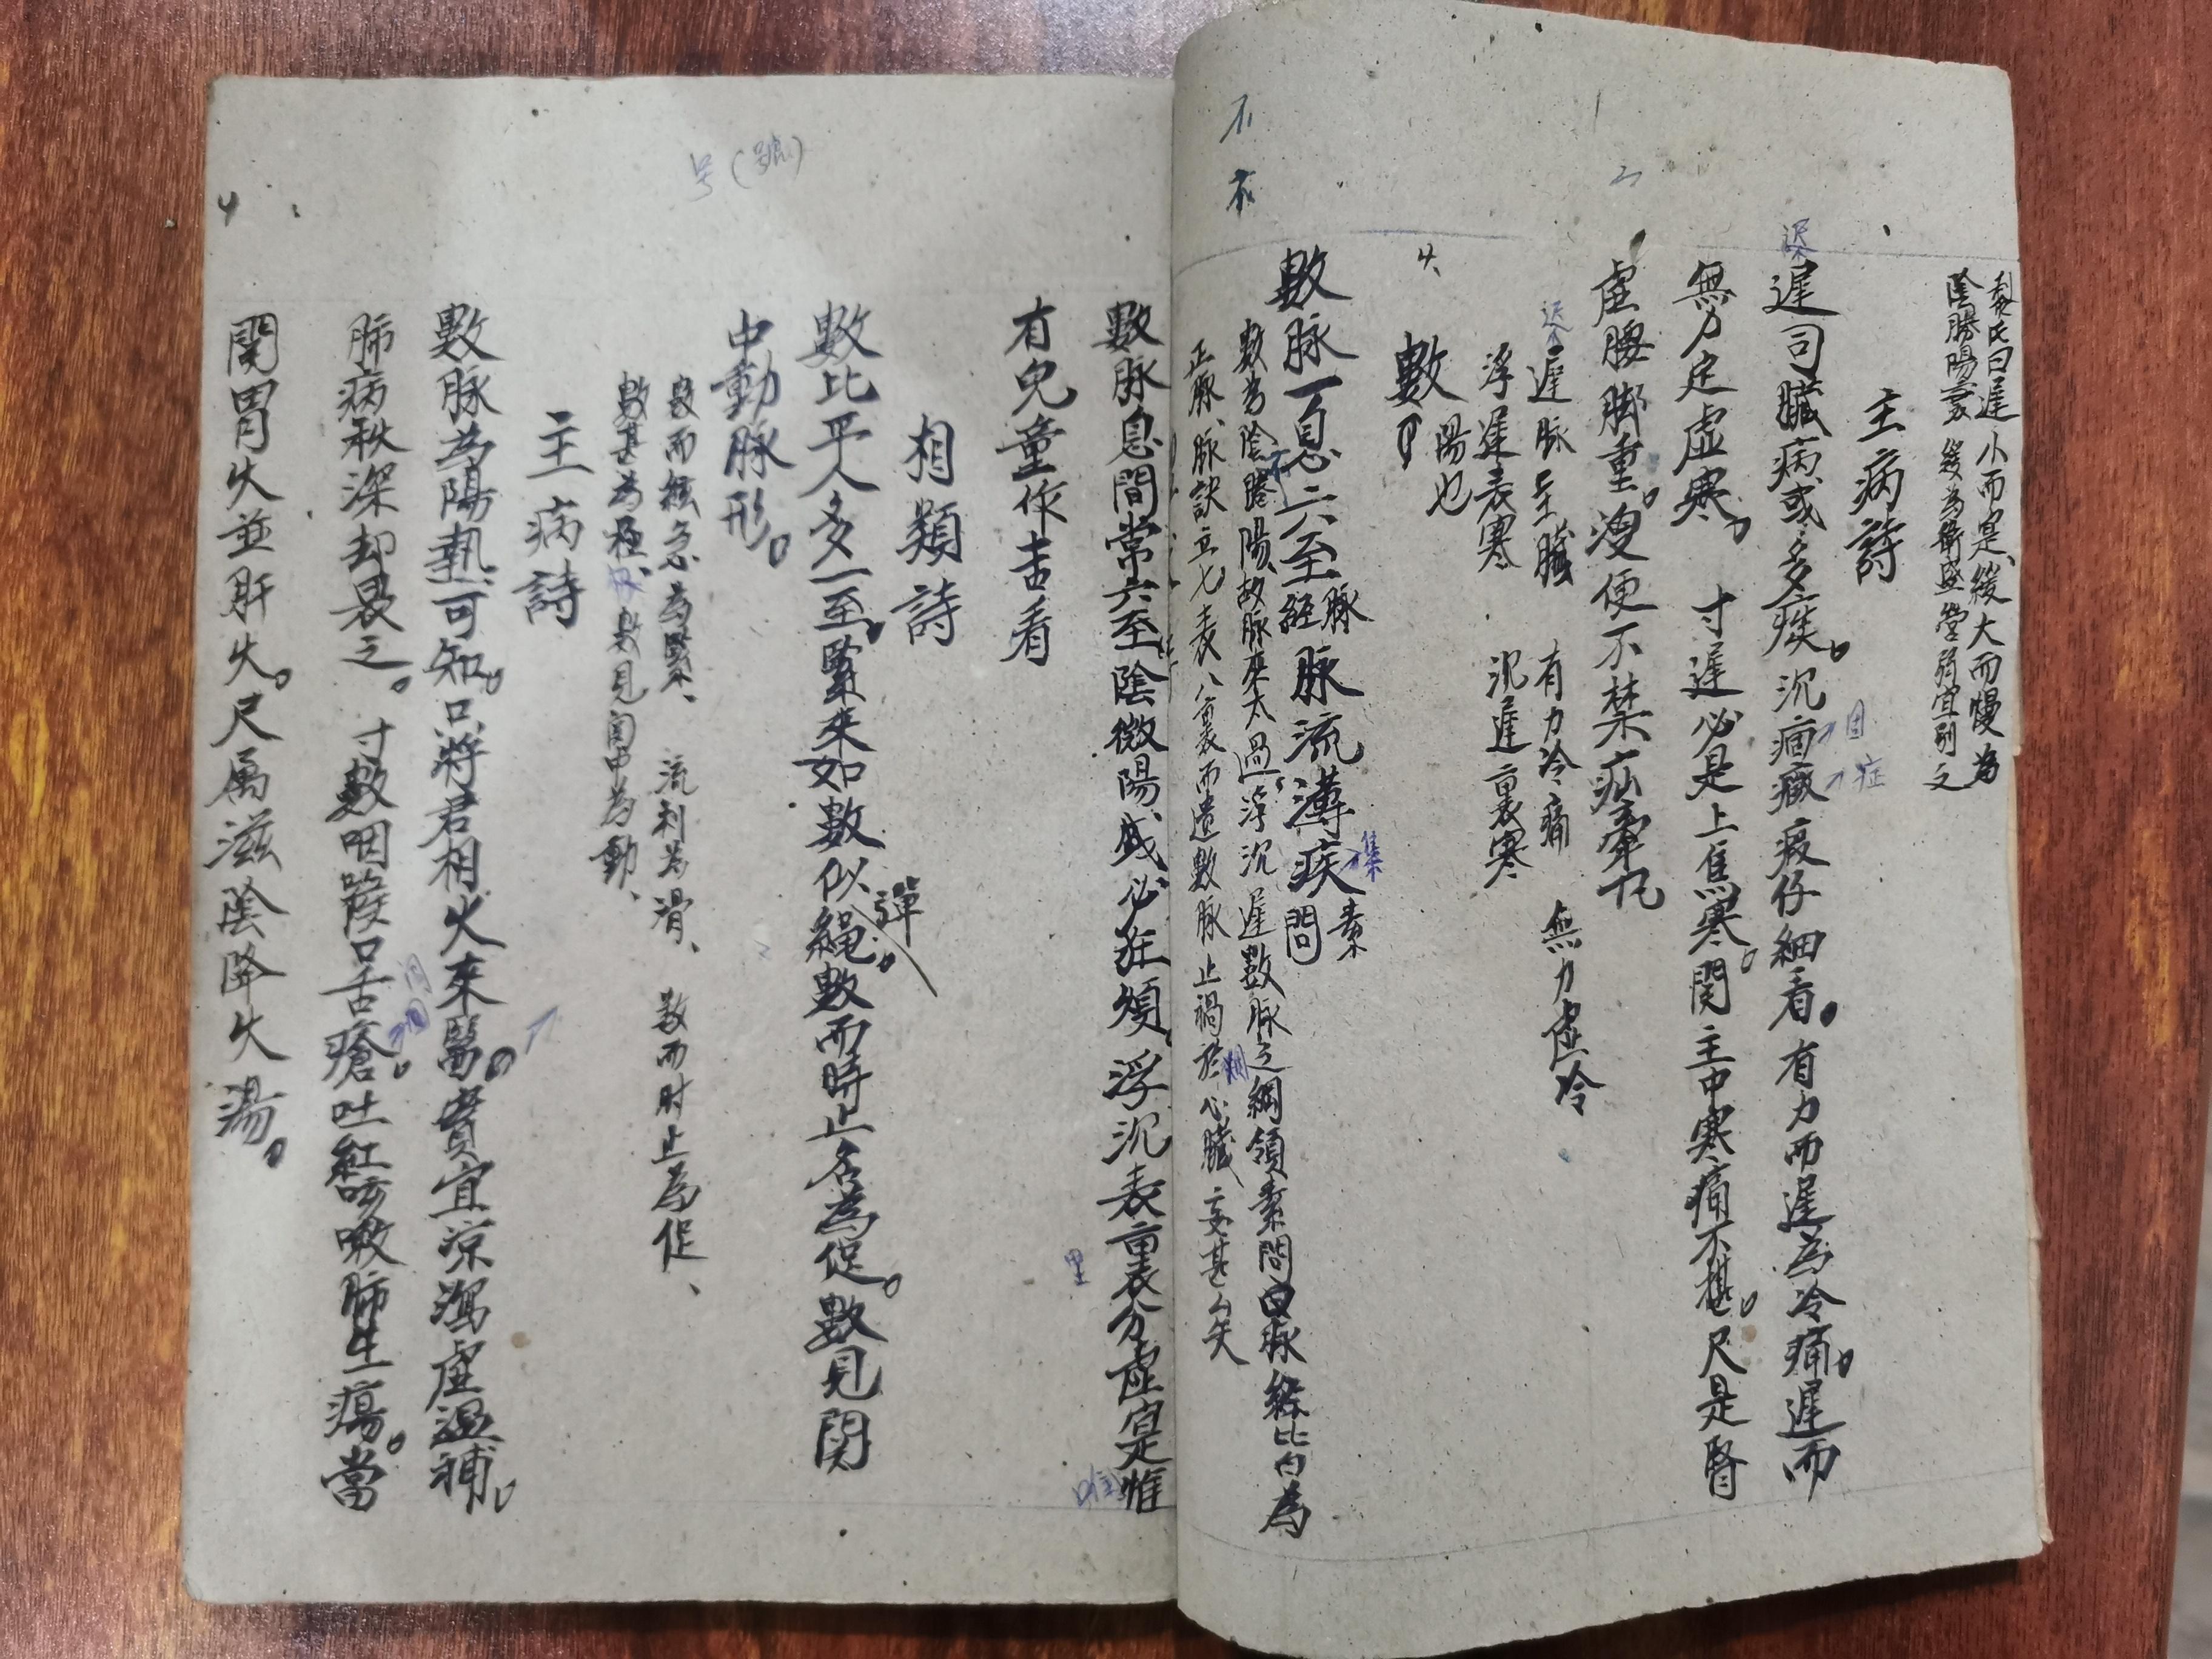 黎氏曰遲小而寔、緩大而慢為
陰勝陽衰緩為衛盛營弱宜別之
主病詩
遲司臟病或多痰。沉痼癥瘕仔細看。有力而遲為冷痛。遲而
無力定虛寒。寸遲必是上焦寒。関主中寒痛不堪。尺是腎
虛腰脚重。溲便不禁疝牽丸
遲脉主臟 有力冷痛 無力虛冷
浮遲表寒 沉遲裏寒
數
陽也
數脉一息六至脉經脉流薄疾素問
數為陰不勝陽、故脉來太過、浮沉遲數脉之綱領素問白脉經皆為
正脉、脉訣立七表八裏而遺數脉止禍於心臟妄甚矣
數脉息間常六至陰微陽盛必狂煩、浮沉表裏分虛寔惟
有児童作吉看
相類詩
數比平人多一至、緊來如數似彈繩。數而時止名為促。數見関
中動脉形。
数而絃急為緊、流利為滑、数而时止為促、
數甚為極、数見関中為動、
主病詩
數脉為陽熱可知。只將君相火來醫。實宜涼瀉虛溫補。
肺病秋深却畏之。寸數咽喉口舌瘡。吐紅咳嗽肺生瘍。當
関胃火並肝火。尺属滋陰降火湯。
号(號)
迟
迟
固
症
集
里
唯